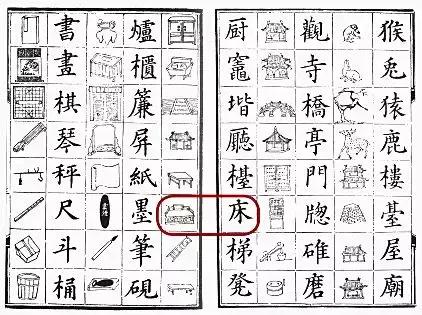 猴兎猿鹿樓臺屋廟
觀寺橋亭門牕碓磨
厨竈堦廳檯床梯凳
爐櫃簾屏紙墨筆硯
書畫棋琴秤尺斗桶